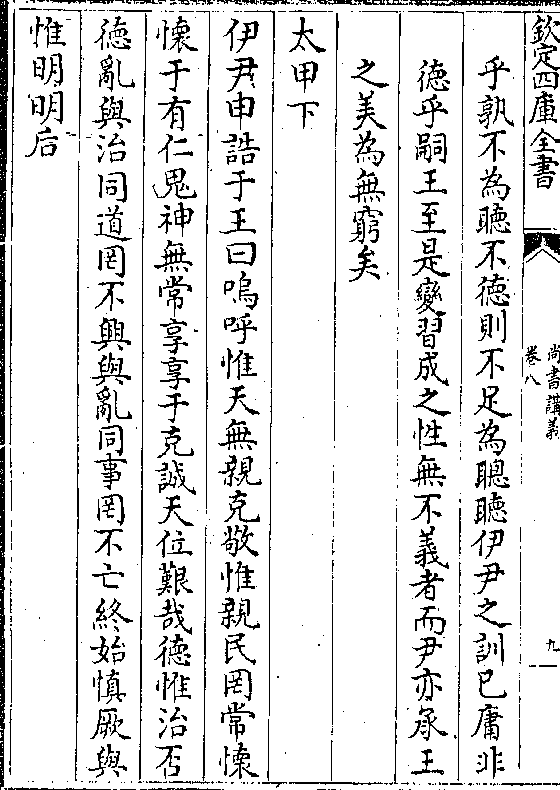 欽定四庫全書
尚書講義
卷八
九
乎孰不為聽不德則不足為聰聽伊尹之訓已庸非
德乎嗣王至是變習成之性無不義者而尹亦承王
之美為無窮矣
太甲下
伊尹申誥于王曰嗚呼惟天無親克敬惟親民罔常懷
懷于有仁鬼神無常享享于克誠天位艱哉德惟治否
德亂與治同道罔不興與亂同事罔不亡終始慎厥與
惟明明后